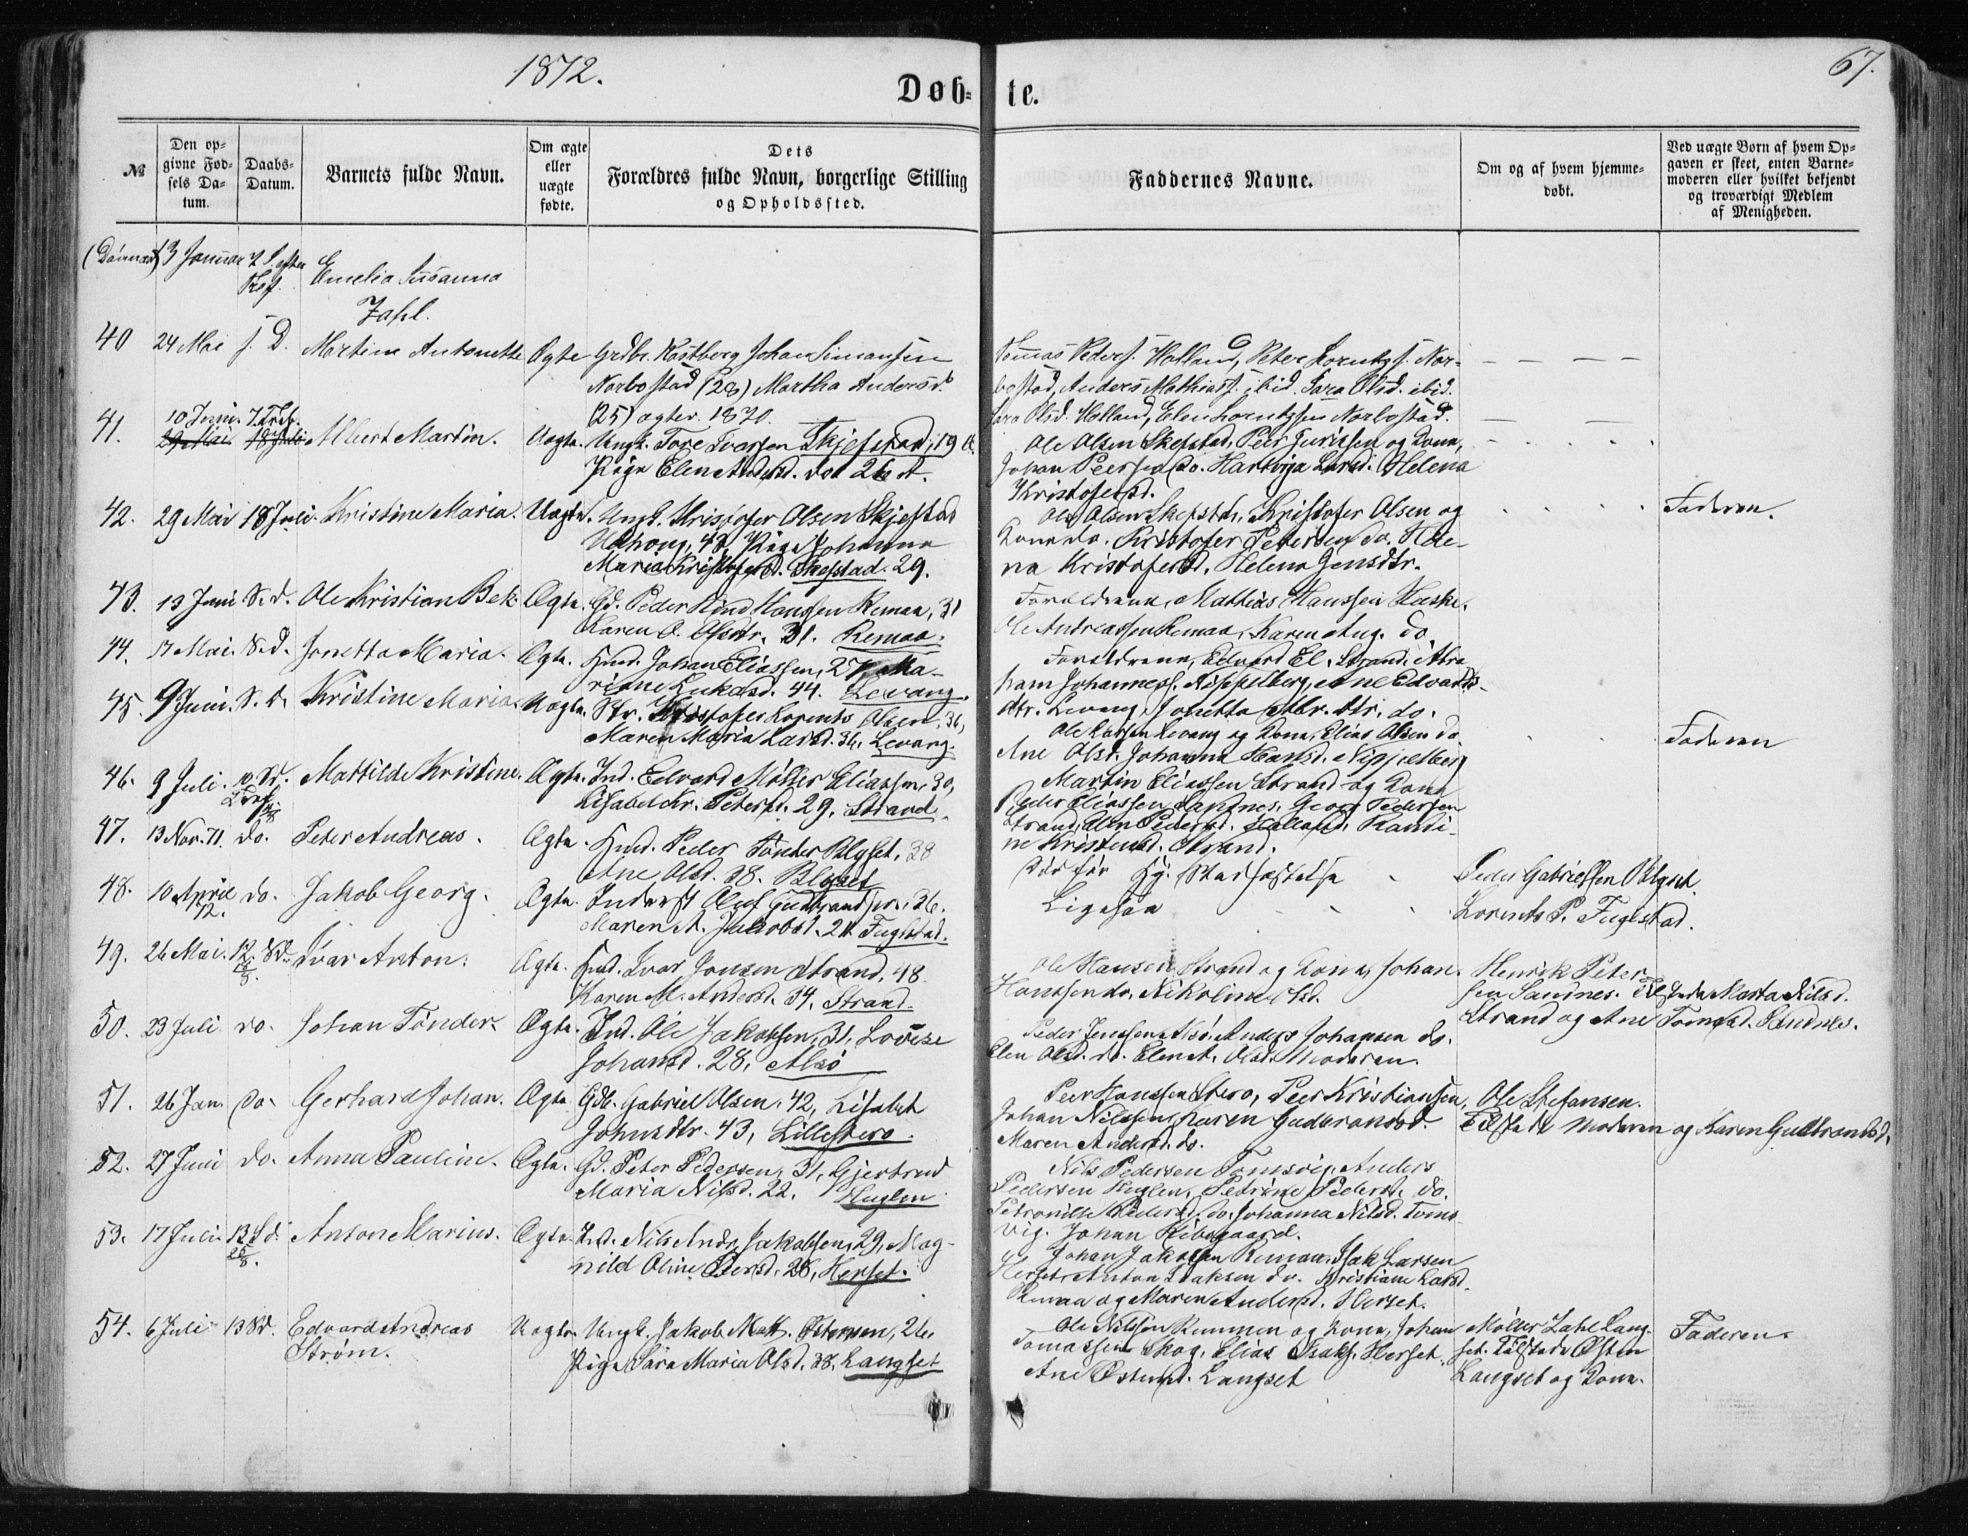 1872.
67.
Døb-
te.
№
Den op-
givne Fød-
sels Da-
tum.
Daabs-
Datum.
Barnets fulde Navn.
Om ægte
eller
uægte
fødte.
Dets
Forældres fulde Navn, borgerlige Stilling
og Opholdssted.
Faddernes Navne.
Om og af hvem hjemme-
døbt.
Ved uægte Børn af hvem Op-
gaven er skeet, enten Barne-
moderen eller hvilket bekjendt
og troværdigt Medlem
af Menigheden.
3 Januar
Emelia Susanna
Zahl.
40
24 Mai
Martine Antonette
Ægte
Johan Simonsen
Norbostad (28) Martha Andersd.
(25) ægtev. 1870.
Tomas Peders. Holland, Peter Lorentzs. Nor-
bostad, Anders Mathiass. ibid. Sara Olsd. ibid.
Sara Olsd. Holland, Elen Lorentzsen Norbostad.
41.
10 Juni
29 Mai
18 Juli
Albert Martin.
Uægte.
Ungk. Tore Ivarsen Skjefstad, 19 A.
Pige Elen Andersd. do 26 A.
Ole Olsen Skefstad, Peer Juristen og Kone,
Johan Peersen do. Hartvija Larsd. Helena
Kristofersd.
42.
29 Mai
18 Juli.
Kristine Maria.
Uægte.
Ungk. Kristofer Olsen Skjefstad
48, Pige Johanna
Maria Kristofersd. Skefstad. 29.
Ole Olsen Skefstad, Kristofer Olsen og
Kone do. Kristofer Petersen do. Hele-
na Kristofersd, Helena Jensdtr.
Faderen.
43.
13 Juni
S. d.
Ole Kristian Bek.
Ægte.
Gd. Peder Kind Hanssen Remaa, 31
Karen O. Olsdtr. 31. Remaa.
Forældrene, Mathias Hanssen Haske.
Ole Andreassen Remaa, Karen Aug. do.
44.
17 Mai.
S. d.
Jonetta Maria.
Ægte.
Husm. Johan Eliassen, 27, Ma-
rine Lukasd. 44. Levang.
Forældrene, Edvard El. Strand, Abra
ham Johanness. Nippelberg, Ane Edvards-
dtr. Levang, Jonetta Abr. dtr. do.
45.
9 Juni.
S. d.
Kristine Maria.
Uægte.
Str. Kristofer Lorents Olsen, 36,
Maren Maria Larsd. 36, Levang.
Ole Larsen Levang og Kone, Elias Olsen do.
Ane Olsd. Johanna Hansd. Nippelberg
Faderen
46.
9 Juli.
10 Sd.
Mattilde Kristine.
Ægte.
Ind. Edvard Møller Eliassen, 30,
Lisabet Kr. Petersd. 29. Strand.
Martin Eliassen Strand og Kone
Peder Eliassen Sandnes, Georg Pedersen
Strand, Elen Pedersd. Holland, Randi-
ne Kristensd. Strand.
47.
13 Nov. 71.
do.
Peter Andreas.
Ægte.
Husm. Peder Tønder Blyset, 38
Ane Olsd. 38. Blyset
Død før Kj. Stadfæstelse
Peder Gabrielsen Blyset.
48.
10 April
72.
do.
Jakob Georg.
Ægte.
Inderst Oluf Gudbrandsen, 36.
Maren A. Jakobsd. 24. Fuglstad.
Ligesaa
Lorents P. Fuglstad.
49.
26 Mai.
12. Sd.
18/8
Ivar Anton.
Ægte.
Husm. Ivar Jonsen Strand, 48.
Karen M. Andersd. 34, Strand.
Ole Hansen Strand og Kone, Johan
Hanssen do. Nikoline Olsd.
Henrik Peter-
sen Sandnes. Tilstede Marta Nilsd.
Strand og Ane Tomasd. Sandnes.
50.
23 Juli
do.
Johan Tønder.
Ægte.
Ind. Ole Jakobsen, 31, Lovise
Johansd. 28, Alsø
Peder Jenssen Alsø, Anders Johansen do.
Elen Olsd. do. Elen A. Olsd. Moderen.
51.
26 Jan.
do.
Gerhard Johan.
Ægte.
Gdb. Gabriel Olsen, 42, Lisabet
Johnsdtr. 43, Lillestero.
Peer Hanssen Stero, Peer Kristiansen,
Johan Nilssen, Karen Gudbrandsd.
Maren Andersd. do.
Ole Stefansen.
Tilstede Moderen og Karen Gudbrandsd.
52.
27 Juni
do.
Anna Pauline.
Ægte.
Gd. Peter Pedersen, 31, Gjertrud
Maria Nilsd. 22. Huglen.
Nils Pedersen Tomsvig, Anders
Pedersen Huglen, Petrine Pedersd. do.
Petronille Pedersd. do. Johanna Nilsd. Toms-
vig. Johan Ribsgaard.
53.
17 Juli.
13 Sd.
25/8.
Anton Marius.
Ægte.
Ind. Nils Andr. Jakobsen, 29, Mag-
nild Oline Persd. 28, Herset.
Johan Jakobsen Remaa, Isak Larsen
Herset, Anton Isaksen do. Kristiane Larsd.
Remaa og Maren Andersd. Herset.
54.
6 Juli
13 Sd.
Edvard Andreas
Strøm.
Uægte.
Ungk. Jakob Matt. Petersen, 26.
Pige Sara Maria Olsd. 38, Langset
Ole Nilssen Remmen og Kone, Johan
Tomassen Skog, Elias Isaks. Herset.
Ane Østensd. Langset
Møller Zahl Lang-
set. Tilstede Østen
Langset og Kone.
Faderen.